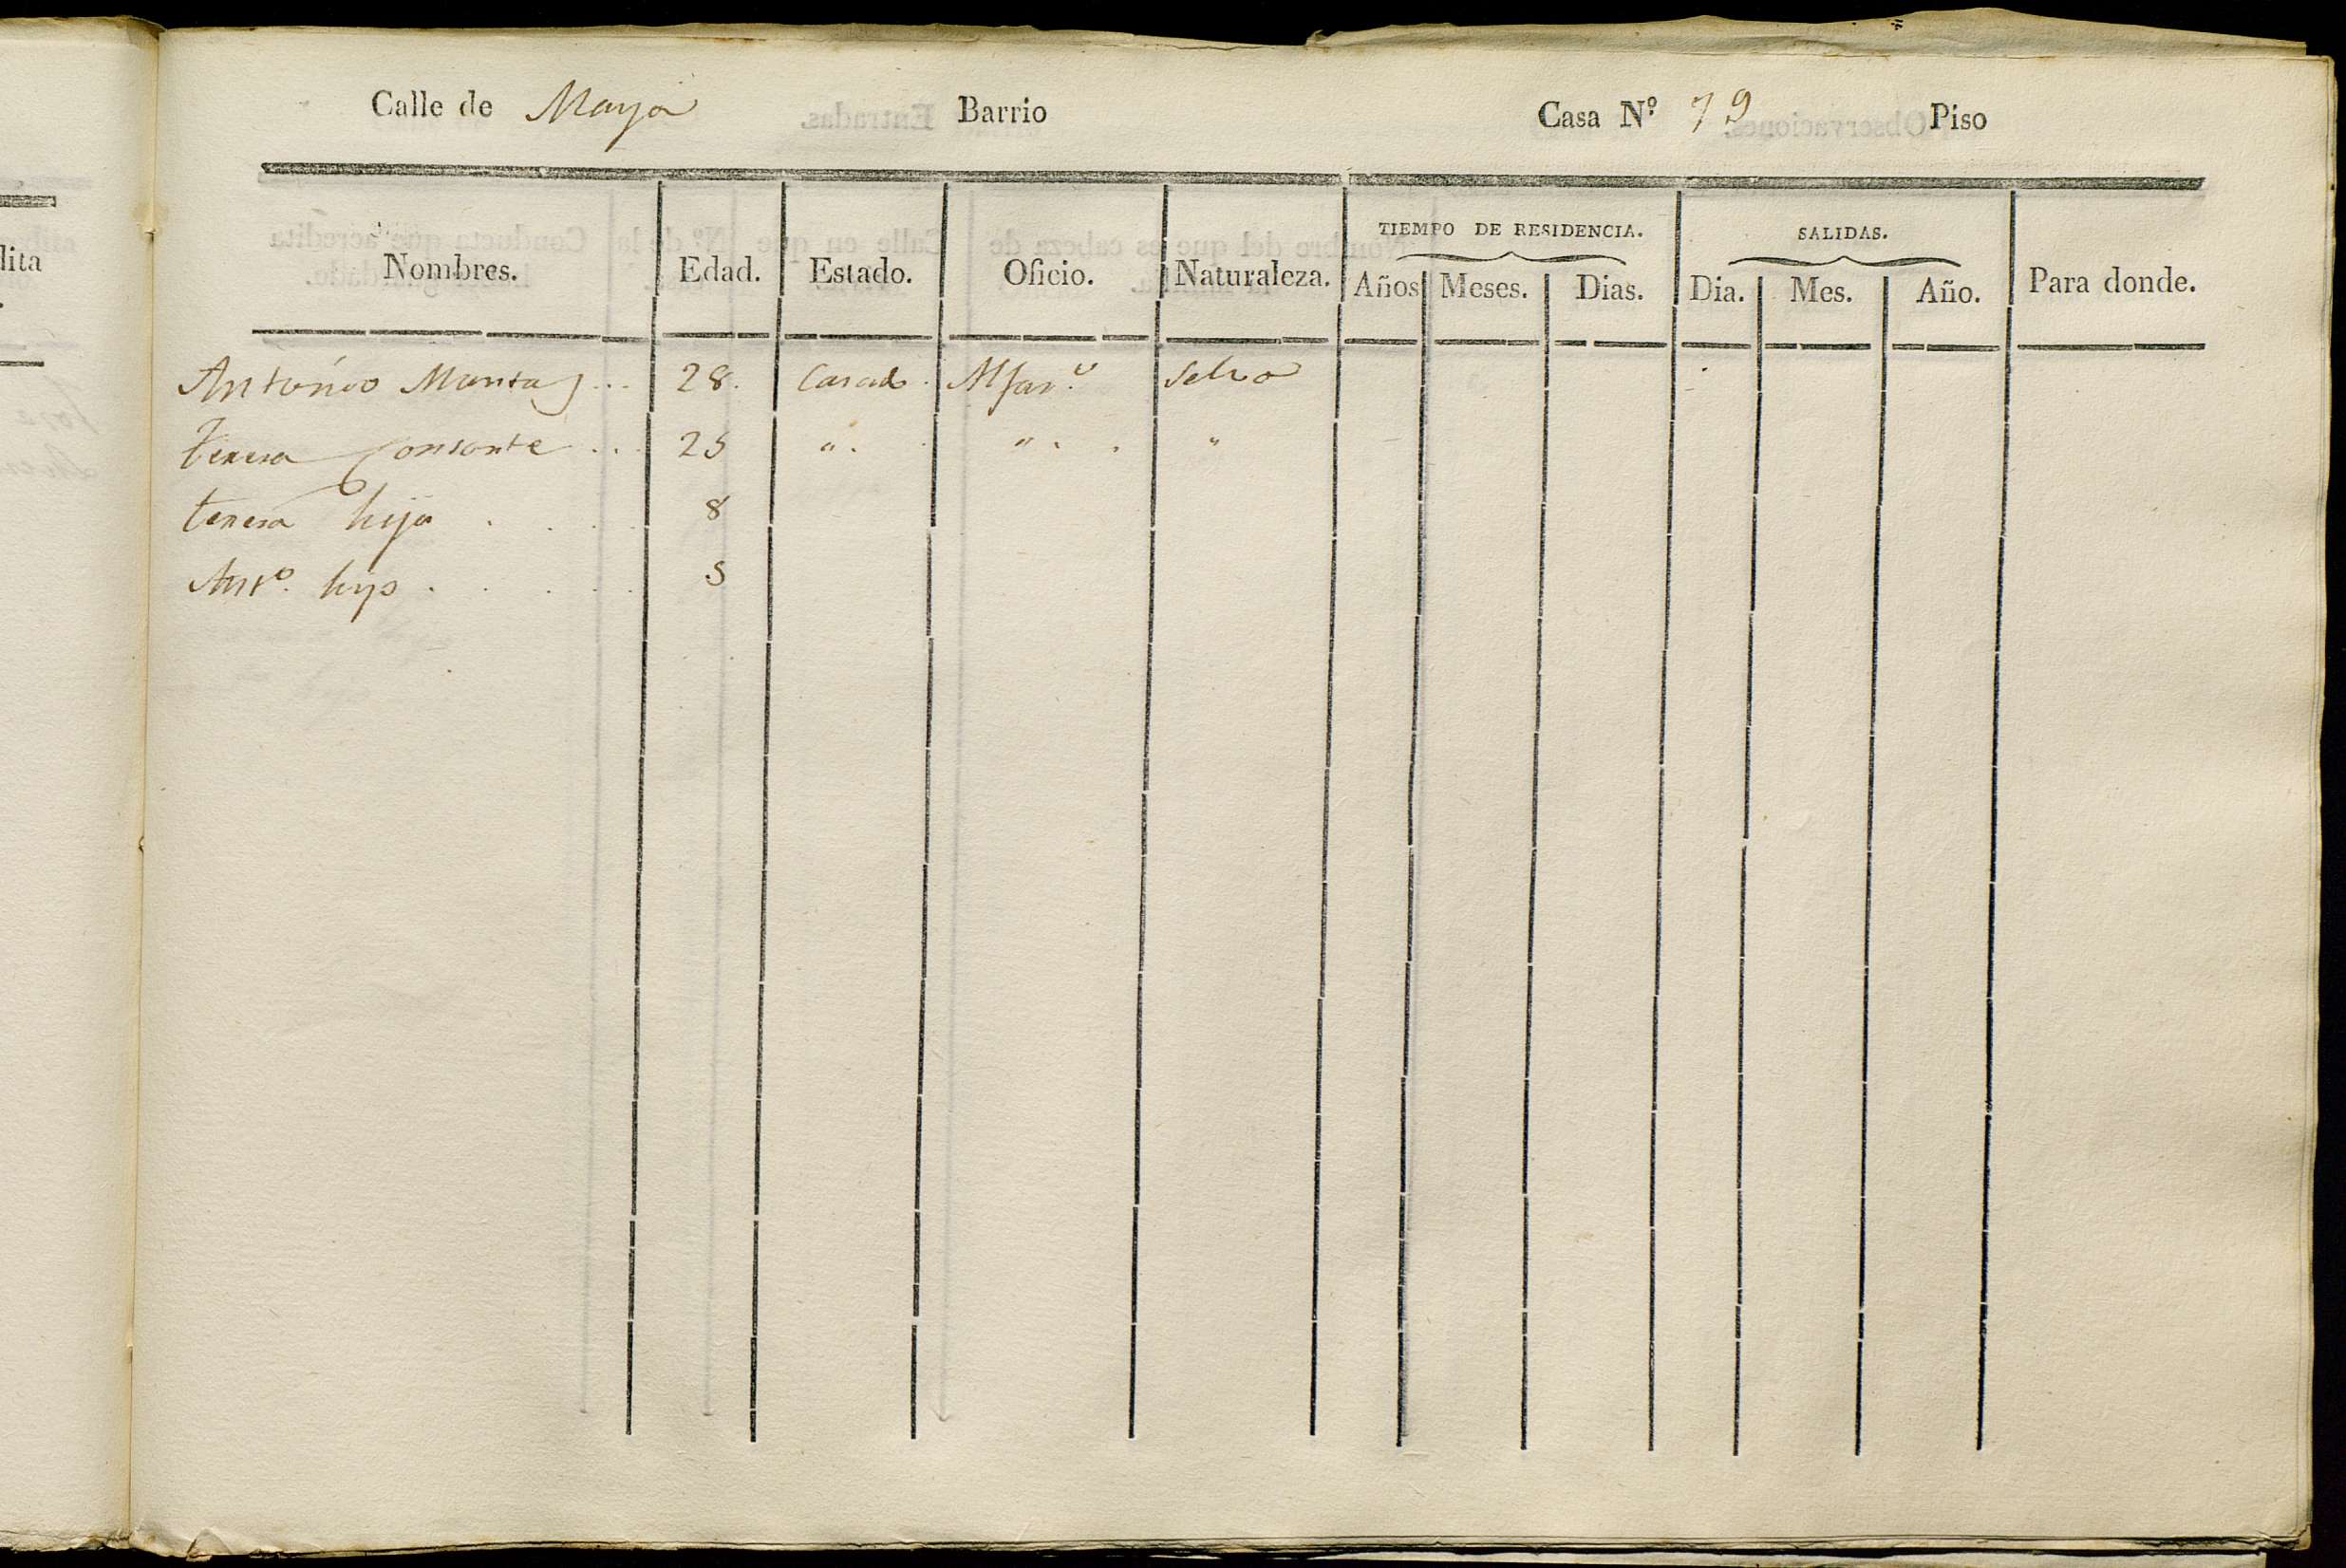 Calle de Mayor Barrio Casa N.º 79 Piso
TIEMPO DE RESIDENCIA. SALIDAS.
Nombres. Edad. Estado. Oficio. Naturaleza. Años Meses. Dias. Dia. Mes. Año. Para donde.
Antonio ... 28. Casado. Alfar.º Selva
teresa consorte ... 25 " . " . . "
teresa hija . . . . 8
Ant.º hijo . . . . . 5
dita